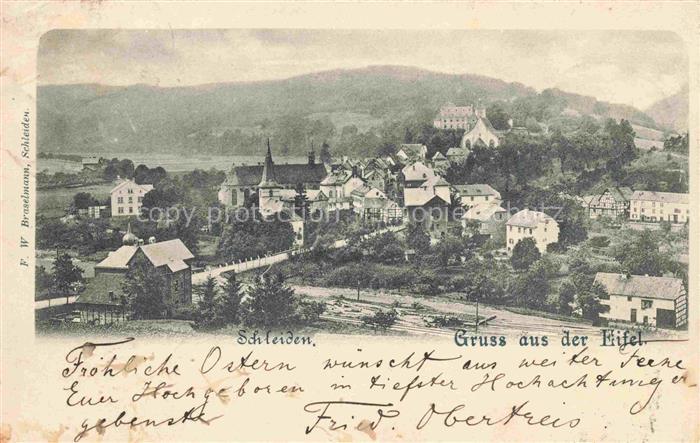 F. W Braselmann, Schleiden.
copyright protection copyright protection
Schleiden.
Gruss aus der Eifel.
Fröhliche Ostern wünscht aus weiter Ferne
Euer Hochgeboren in tiefster Hochachtung
gebenste Fried. Obertreis